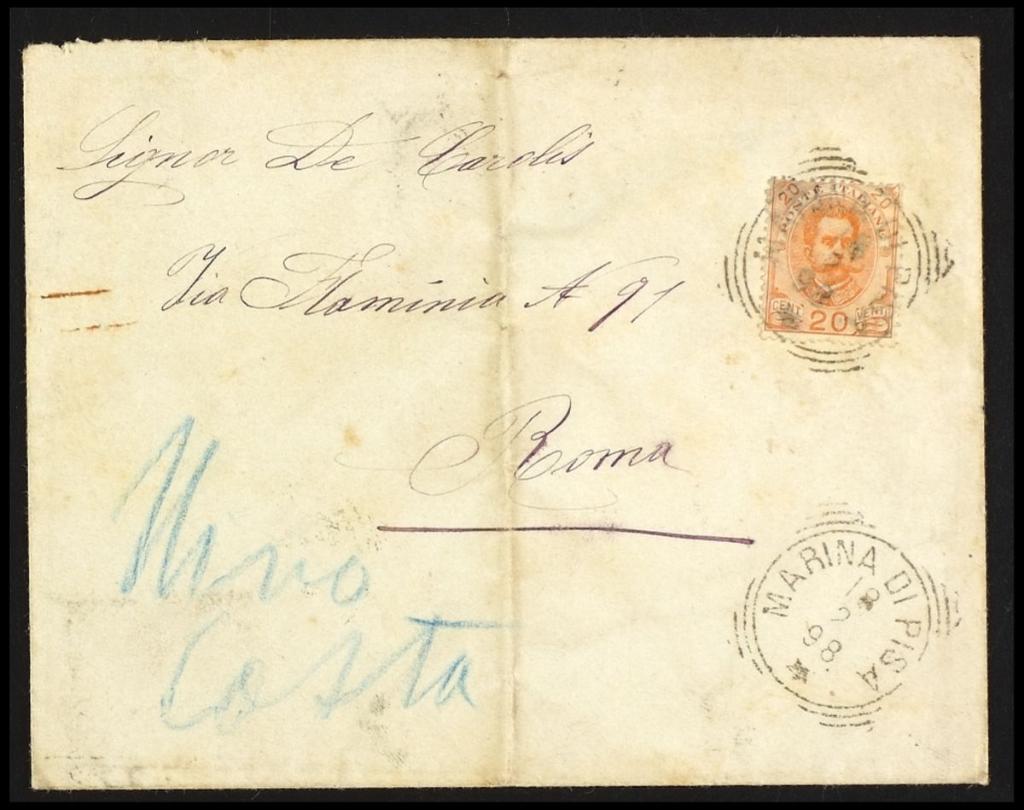 Signor De Carolis
Via Flaminia A 91
Roma
Nino
Costa
20 POSTE ITALIANE 20
CENT. 20 VENTI
MARINA DI PISA
98